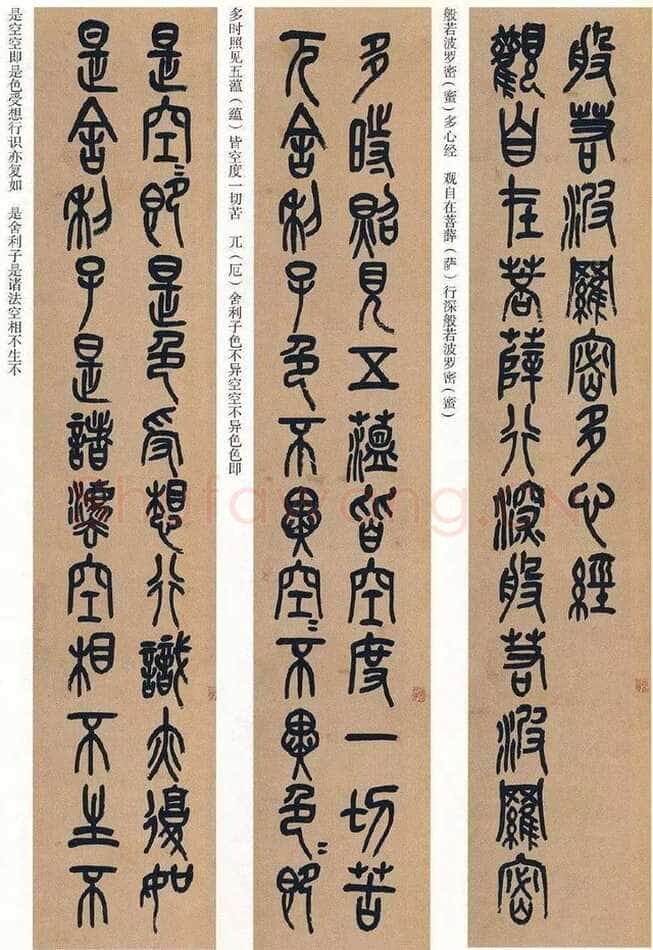 般若波羅密多心經
觀自在菩薛行深般若波羅密
般若波罗密（蜜）多心经　观自在菩薛（萨）行深般若波罗密（蜜）
多時照見五薀皆空度一切苦
兀舍利子色不異空〻不異色〻即
多时照见五薀（蕴）皆空度一切苦　兀（厄）舍利子色不异空空不异色色即
是空〻即是色受想行識亦復如
是舍利子是諸灋空相不生不
是空空即是色受想行识亦复如　是舍利子是诸法空相不生不
shufawang.CN